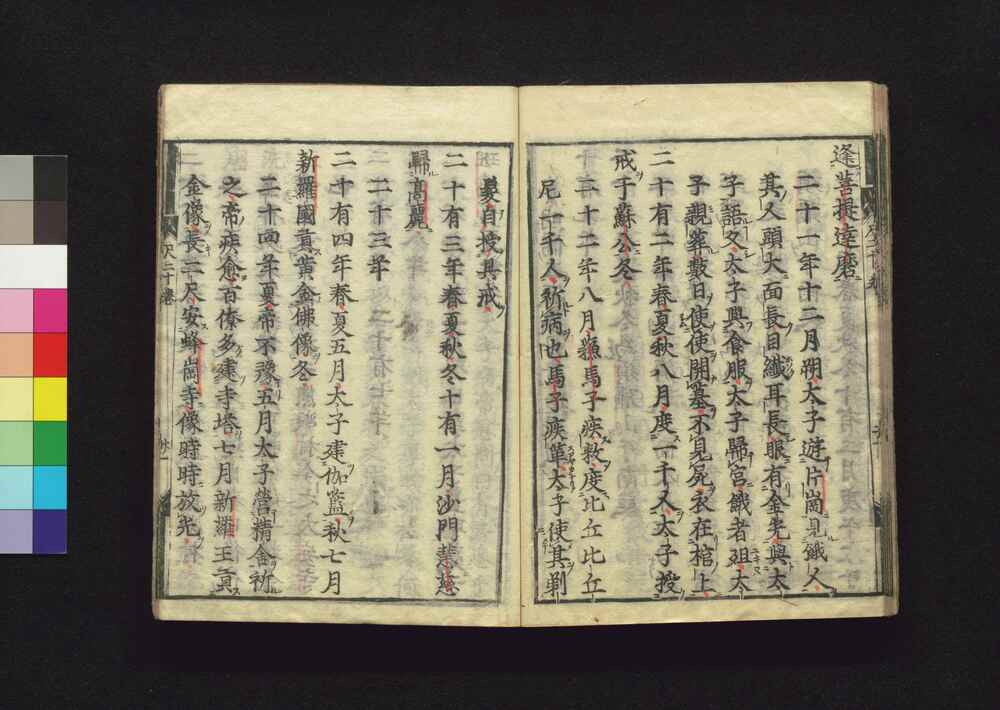 逢菩提達磨
二十一年十二月朔太子遊片崗見餓人
其人頭大面長目纖耳長眼有金光與太
子語久太子與食服太子歸宮餓者殂太
子親葬數日使使開墓不見屍衣在棺上
二十有二年春夏秋八月度一千人太子授
戒于蘇公冬
二十二年八月嶋馬子疾救度比丘比丘
尼一千人祈病也馬子疾篤太子使其剃
髮自授具戒
二十有三年春夏秋冬十有一月沙門慧慈
歸高麗
二十三年
二十有四年春夏五月太子建伽藍秋七月
新羅國貢黃金佛像冬
二十四年夏帝不豫五月太子營精舍祈
之帝疾愈百僚多建寺塔七月新羅王貢
金像長二尺安蜂崗寺像時時放光